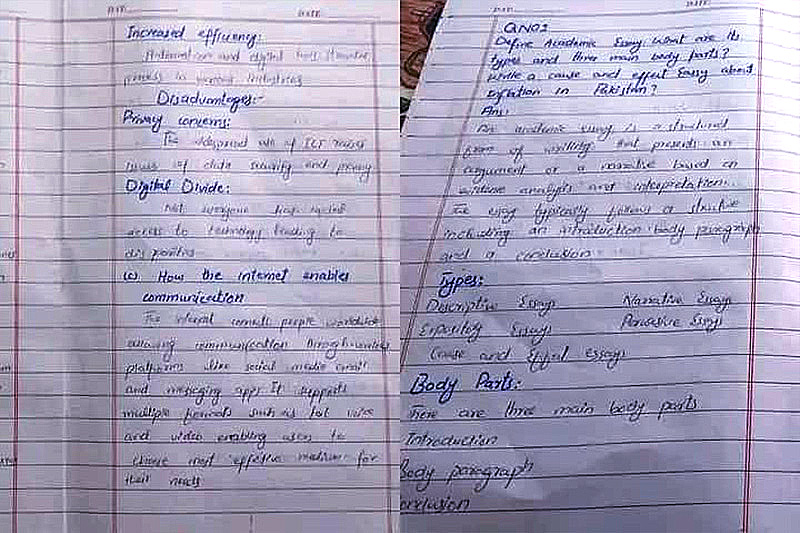 Increased efficiency:
and digital
process in various industries
Disadvantages:-
Privacy concerns:
The widespread use of ICT raises
issues of data security and privacy
Digital Divide:
Not everyone has
access to technology leading to
disparities
(c). How the internet enables
communication
The internet connects people worldwide
allowing communication through various
platforms like social media email
and messaging apps It supports
multiple such as text voice
and video enabling users to
choose most effective medium for
their needs
QNO2
Define Academic Essay. What are its
types and three main body parts?
Write a cause and effect Essay about
inflation in Pakistan?
Ans:
An academic essay is a structured
form of writing that presents an
argument or a narrative based on
evidence analysis and interpretation.
The essay typically follows a
including an introduction body paragraph
and a conclusion
Types:
Descriptive Essays Narrative Essays
Essays Essays
Cause and Effect essays
Body Parts:
There are three main body parts
Introduction
Body paragraph
onclusion